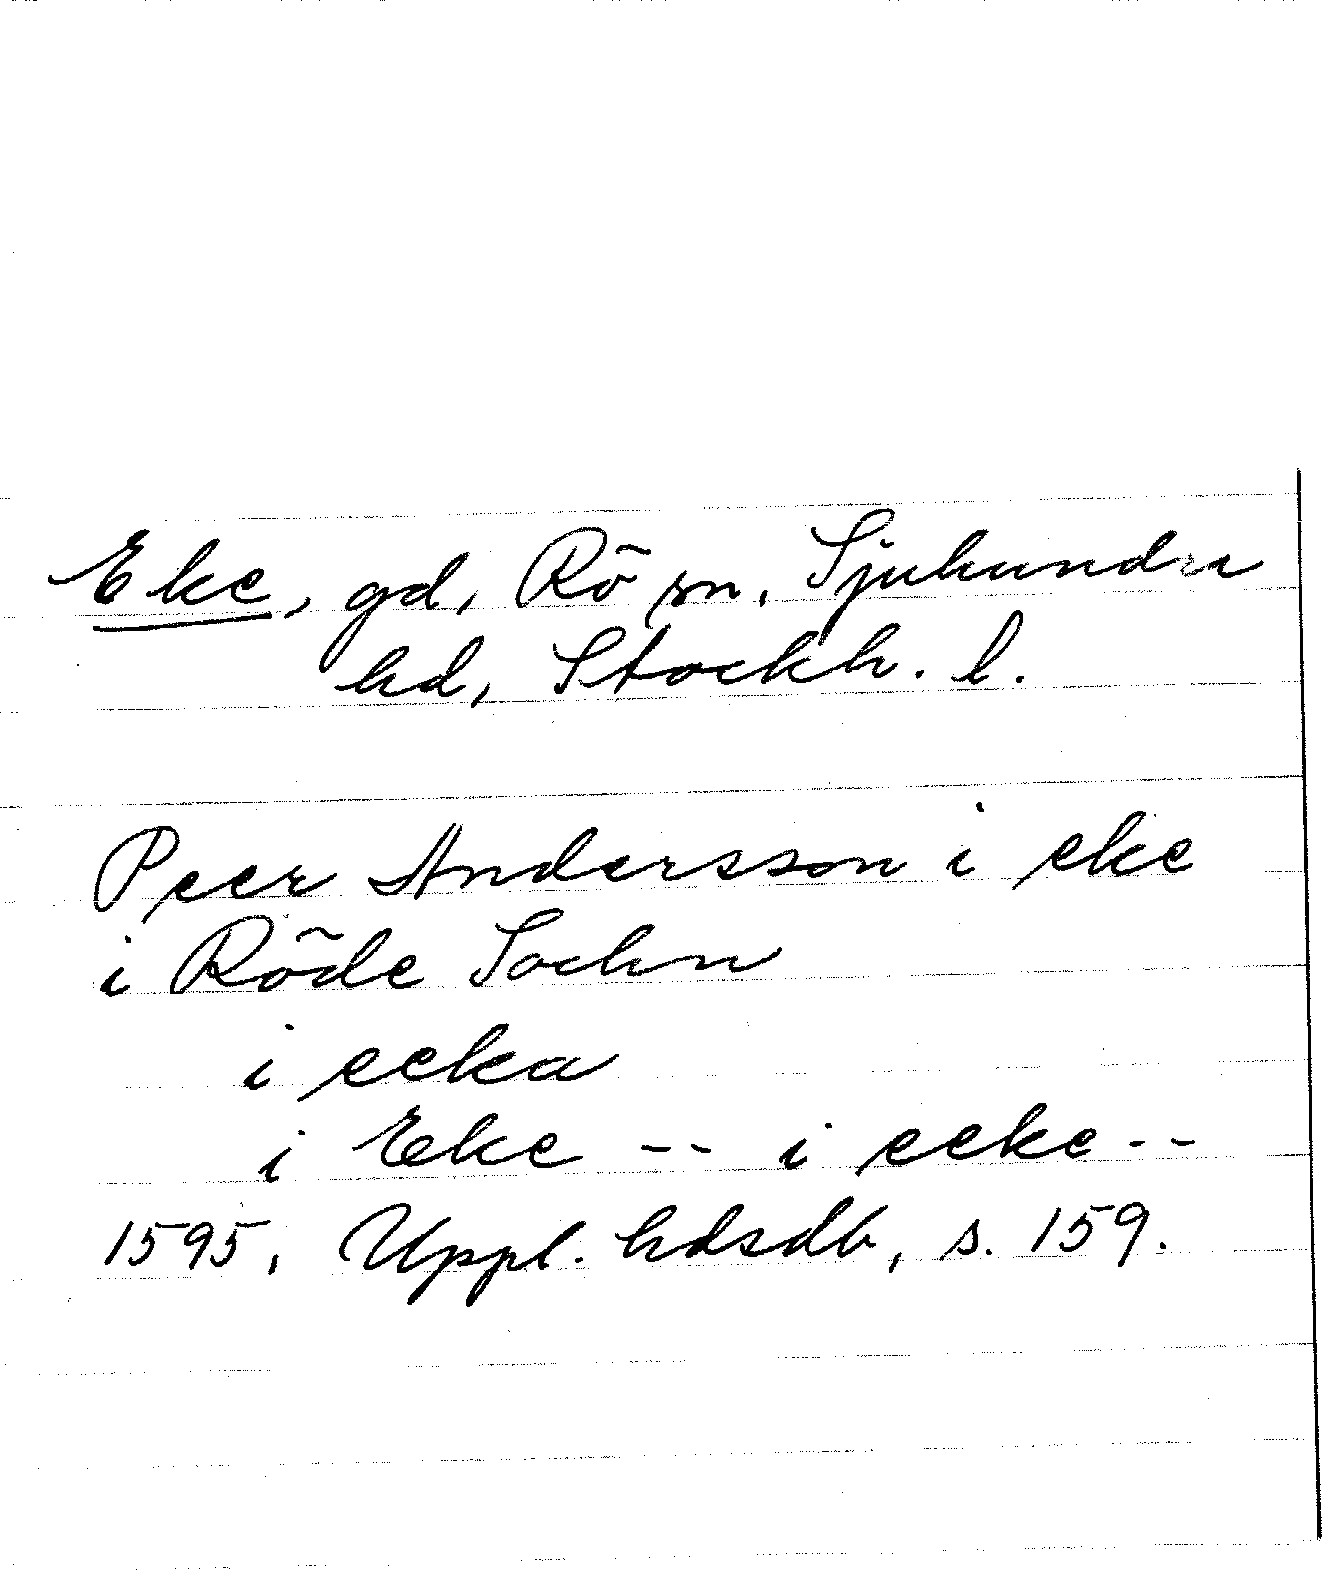 Eke, gd, Rö sn, Sjuhundra
hd, Stockh. l.
Peer Andersson i eke
i Röde Sochn
i eeka
i Eke -- i eeke--
1595, Uppl. hdsdb, s. 159.